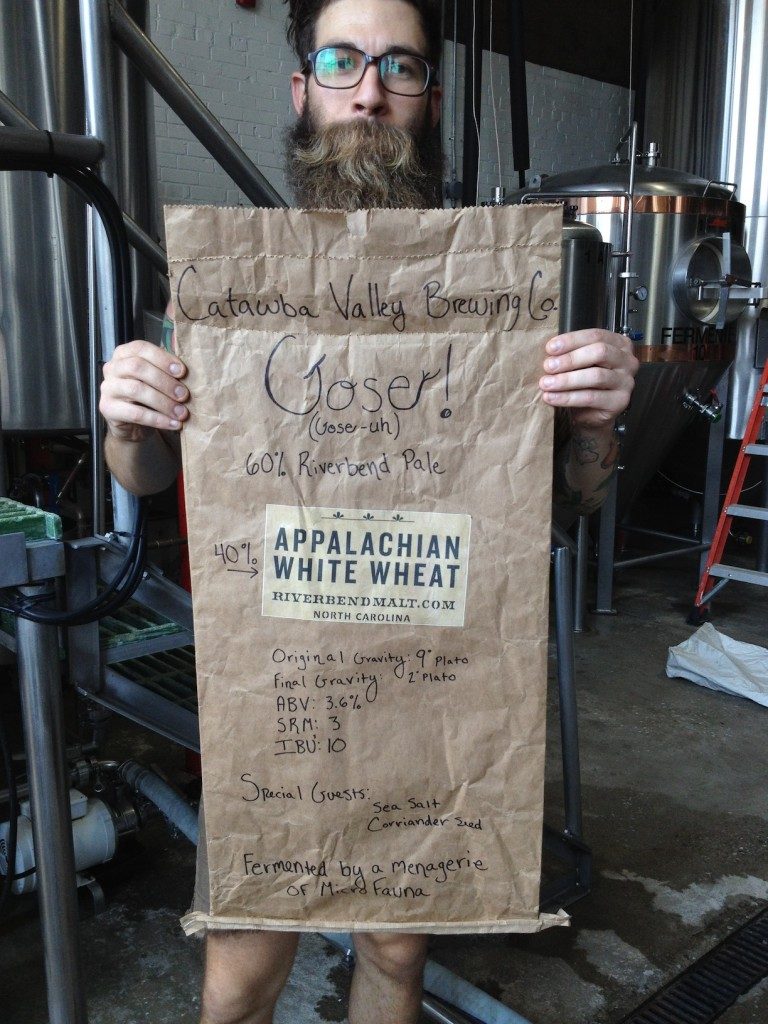 Catawba Valley Brewing Co.
Goser!
(Goser-uh)
60% Riverbend Pale
40%
APPALACHIAN
WHITE WHEAT
RIVERBENDMALT.COM
NORTH CAROLINA
Original Gravity: 9° Plato
Final Gravity: 2° Plato
ABV: 3.6%
SRM: 3
IBU: 10
Special Guests:
Sea Salt
Corriander Seed
Fermented by a menagerie
of Micro Fauna